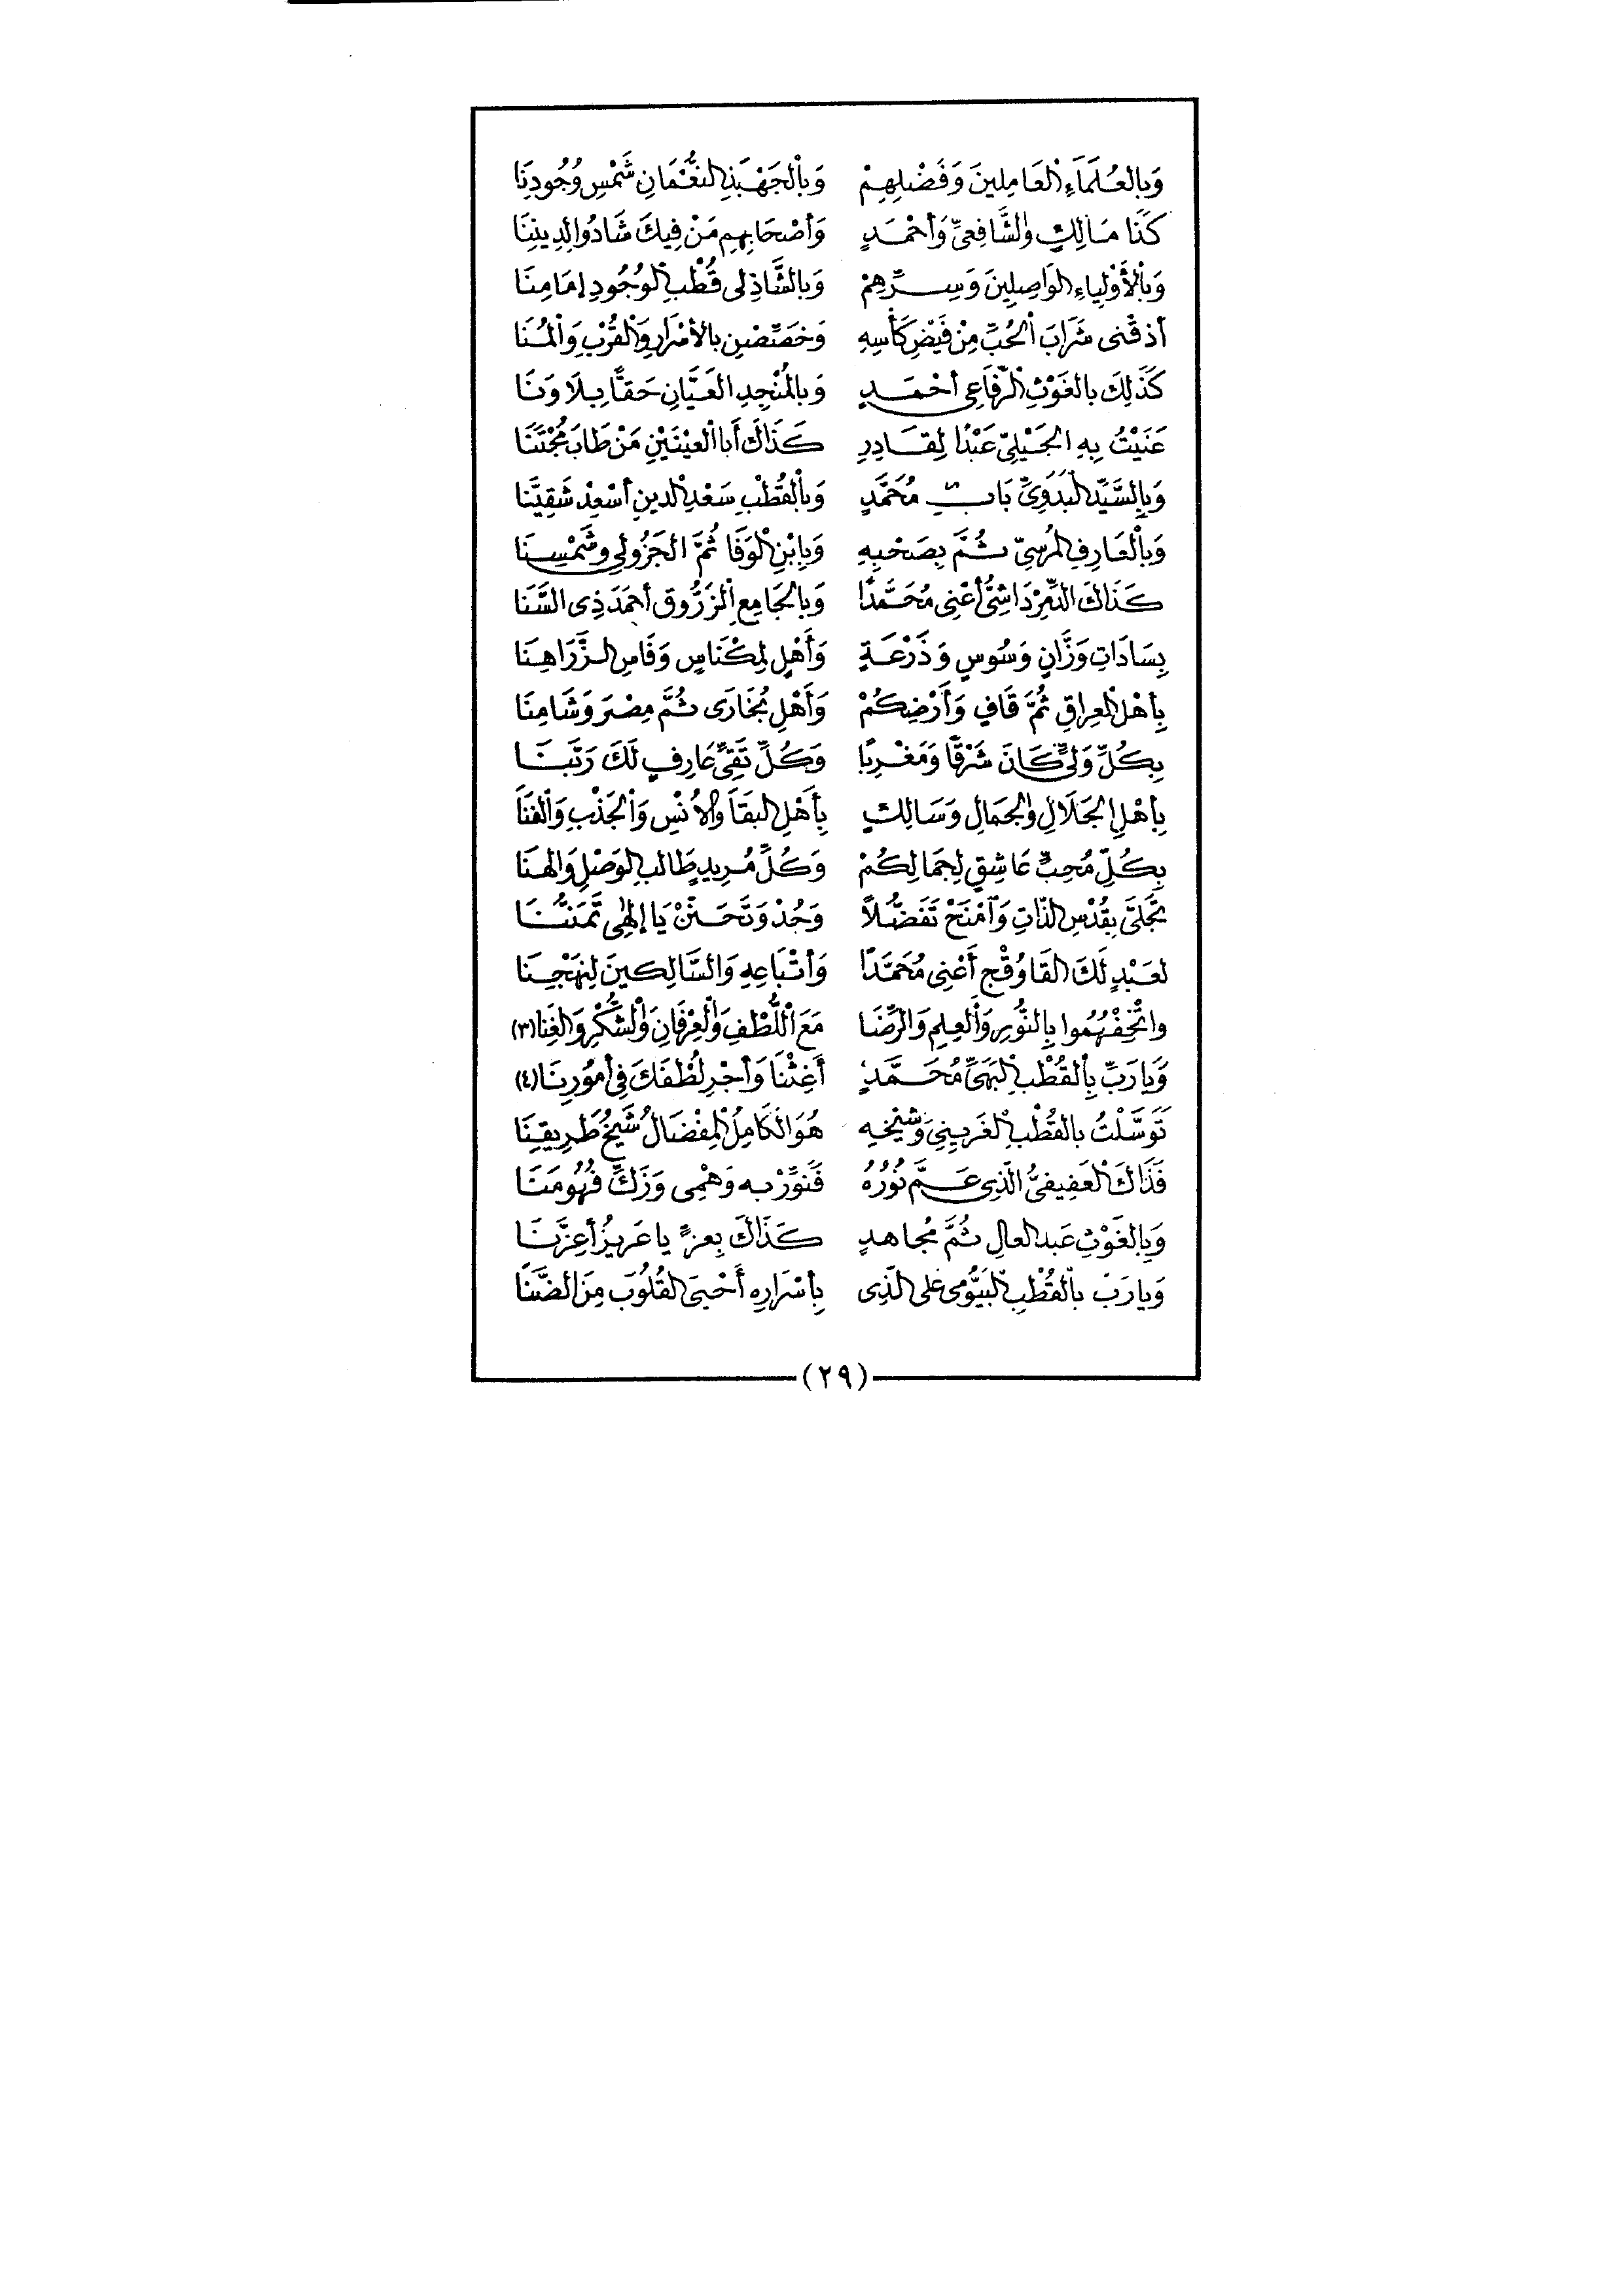 وَبِالعُلَمَاءِ العَامِلِينَ وَفَضْلِهِمْ وَبِالْجَهْبَذِ النُّعْمَانِ شَمْسِ وُجُودِنَا
كَذَا مَالِكٍ وَالشَّافِعِيِّ وَأَحْمَدٍ وَأَصْحَابِهِمْ مَنْ فِيكَ شَادُوا لِدِينِنَا
وَبِالْأَوْلِيَاءِ الوَاصِلِينَ وَسِرِّهِمْ وَبِالشَّاذِلِى قُطْبِ الوُجُودِ إِمَامِنَا
أَذِقْنِى شَرَابَ الْحُبِّ مِنْ فَيْضِ كَأْسِهِ وَخَصِّصْنِ بِالأَسْرَارِ وَالْقُرْبِ وَالْمُنَا
كَذَلِكَ بِالغَوْثِ الرِّفَاعِى أَحْمَدٍ وَبِالْمُنْجِدِ العَيَّانِ حَقًّا بِلَا وَنَا
عَنَيْتُ بِهِ الجَيْلِيَّ عَبْدًا لِقَادِرِ كَذَاكَ أَبَا الْعَيْنَيْنِ مَنْ طَابَ مُجْتَنَا
وَبِالسَّيِّدِ البَدَوِيِّ بَابِ مُحَمَّدٍ وَبِالْقُطْبِ سَعْدِ الدِينِ أَسْعِدْ شَقِيَّنَا
وَبِالْعَارِفِ المُرْسِيِّ ثُمَّ بِصَحْبِهِ وَبِابْنِ الْوَفَا ثُمَّ الجَزُولِي وَشَمْسِنَا
كَذَاكَ الدَّمِرْدَاشِيُّ أَعْنِى مُحَمَّدًا وَبِالجَامِعِ الزَرُّوقِ أَحْمَدَ ذِى السَّنَا
بِسَادَاتِ وَزَّانٍ وَسُوسٍ وَذَرْعَةٍ وَأَهْلٍ لِمِكْنَاسٍ وَفَاسِ الزَّرَاهِنَا
بِأَهْلِ العِرَاقِ ثُمَّ قَافٍ وَأَرْضِكُمْ وَأَهْلِ بُخَارَى ثُمَّ مِصْرَ وَشَامِنَا
بِكُلِّ وَلِيٍّ كَانَ شَرْقًا وَمَغْرِبًا وَكُلِّ تَقِيٍّ عَارِفٍ لَكَ رَبَّنَا
بِأَهْلِ الجَلَالِ وَالجَمَالِ وَسَالِكٍ بِأَهْلِ البَقَا وَالأُنْسِ وَالْجَذْبِ وَالْفَنَا
بِكُلِّ مُحِبٍّ عَاشِقٍ لِجَمَالِكُمْ وَكُلِّ مُرِيدٍ طَالِبِ الوَصْلِ وَالهَنَا
تَجَلَّى بِقُدْسِ الذَّاتِ وَامْنَحْ تَفَضُّلاً وَجُدْ وَتَحَنَّنْ يَا إِلهِى تَمَنُّنَا
لِعَبْدٍ لَكَ القَاوُقْجِ أَعْنِى مُحَمَّدًا وَأَتْبَاعِهِ وَالسَّالِكِينَ لِنَهْجِنَا
وَاتْحِفْهُمُوا بِالنُّورِ وَالْعِلْمِ وَالرِّضَا مَعَ اللُّطْفِ وَالْعِرْفَانِ وَالْشُّكْرِ وَالغِنَا (٣)
وَيَا رَبِّ بِالْقُطْبِ الْبَهِيِّ مُحَمَّدٍ أَغِثْنَا وَأَجْرِ لُطْفَكَ فِي أُمُورِنَا (٤)
تَوَسَّلْتُ بِالقُطْبِ الْغَرِيبِيِّ وَشَيْخِهِ هُوَ الْكَامِلُ الْمِفْضَالُ شَيْخُ طَرِيقِنَا
فَذَاكَ الْعَفِيفِيُّ الَّذِى عَمَّ نُورُهُ فَنَوِّرْ بِهِ وَهْمِى وَزَكِّ فُهُومَنَا
وَبِالغَوْثِ عَبدِ العالِ ثُمَّ مُجاهدٍ كَذَاكَ بِعزٍّ يا عَزِيزُ أَعِزَّنَا
وَيا رَبّ بِالْقُطْبِ البَيُّومِى عَلى الَّذِى بِأَسْرَارِهِ أَحْيَى القُلُوبَ مِنَ الضَّنَا
(٢٩)